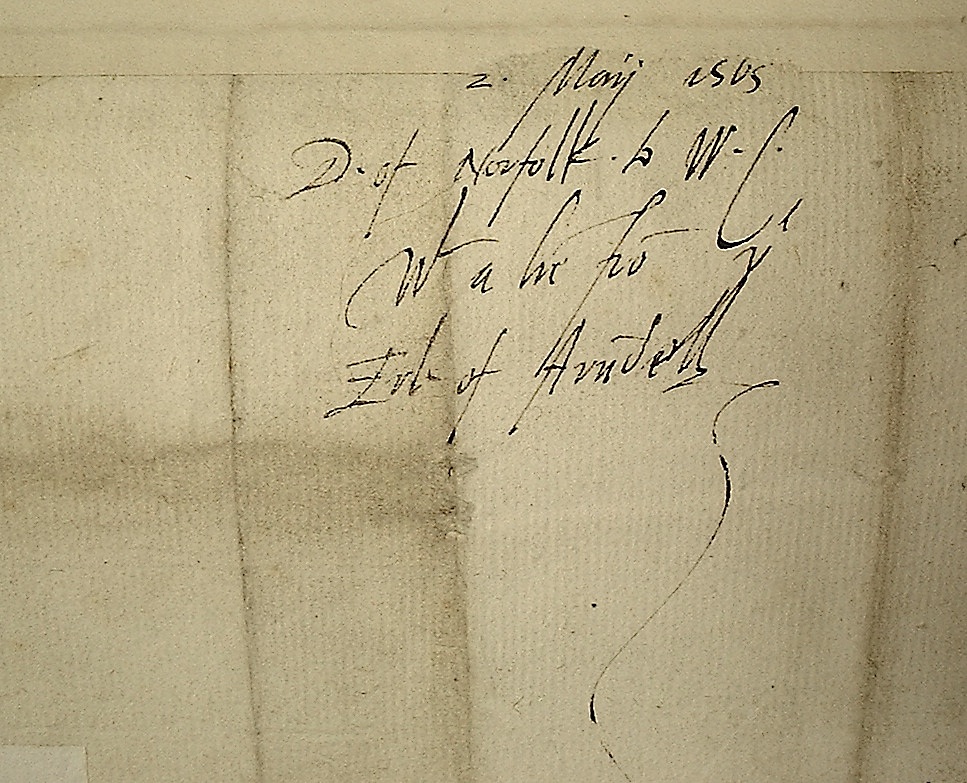 2. Maij 1565
D. of Norfolk. to W. C.
Wt a lre frō ye
Erl of Arūdell